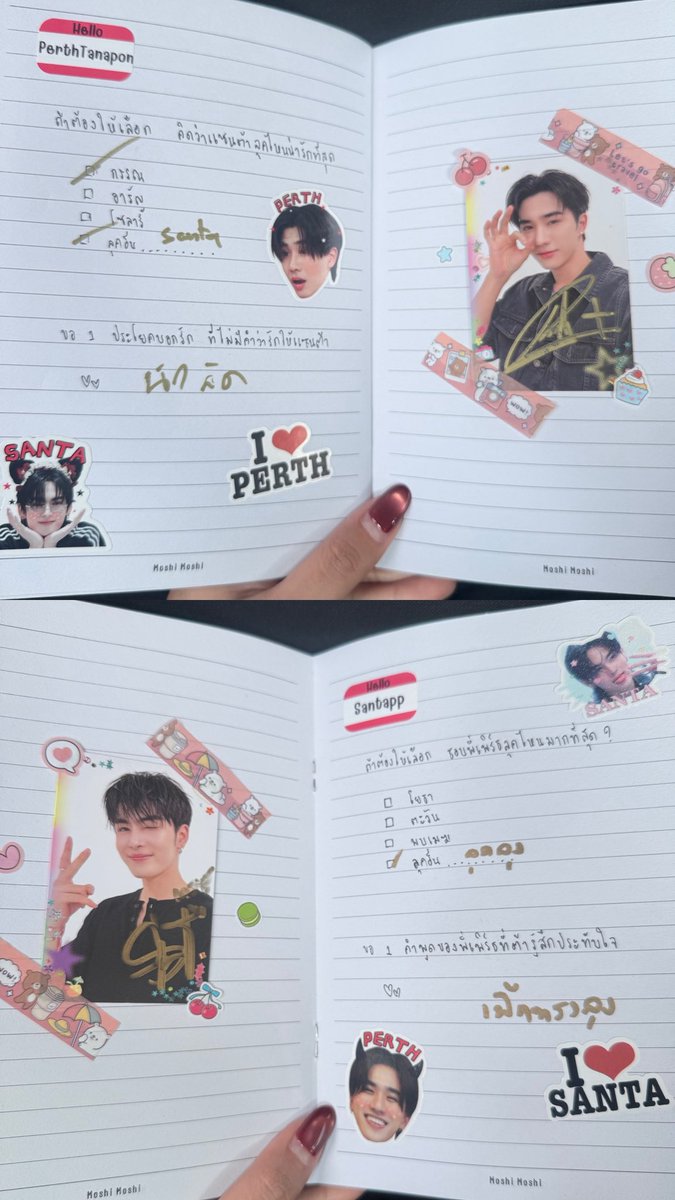 Hello
PerthTanapon
ถ้าต้องให้เลือก คิดว่าแซนต้าลุคไหนน่ารักที่สุด
☐ กรรณ
☐ อารัญ
☐ โซลาร์
☐ ลุคอื่น ........ Santa
PERTH
ขอ 1 ประโยคบอกรัก ที่ไม่มีคำว่ารักให้แซนต้า
SANTA
I ❤ PERTH
Moshi Moshi
Let's go travel
WOW!
Moshi Moshi
WOW!
Moshi Moshi
SANTA
Hello
Santapp
ถ้าต้องให้เลือก ชอบพี่เพิร์ธลุคไหนมากที่สุด ?
☐ โยธา
☐ ตะวัน
☐ พบเมฆ
☐ ลุคอื่น ........
ขอ 1 คำพูดของพี่เพิร์ธที่ต้ารู้สึกประทับใจ
PERTH
I ❤ SANTA
Moshi Moshi